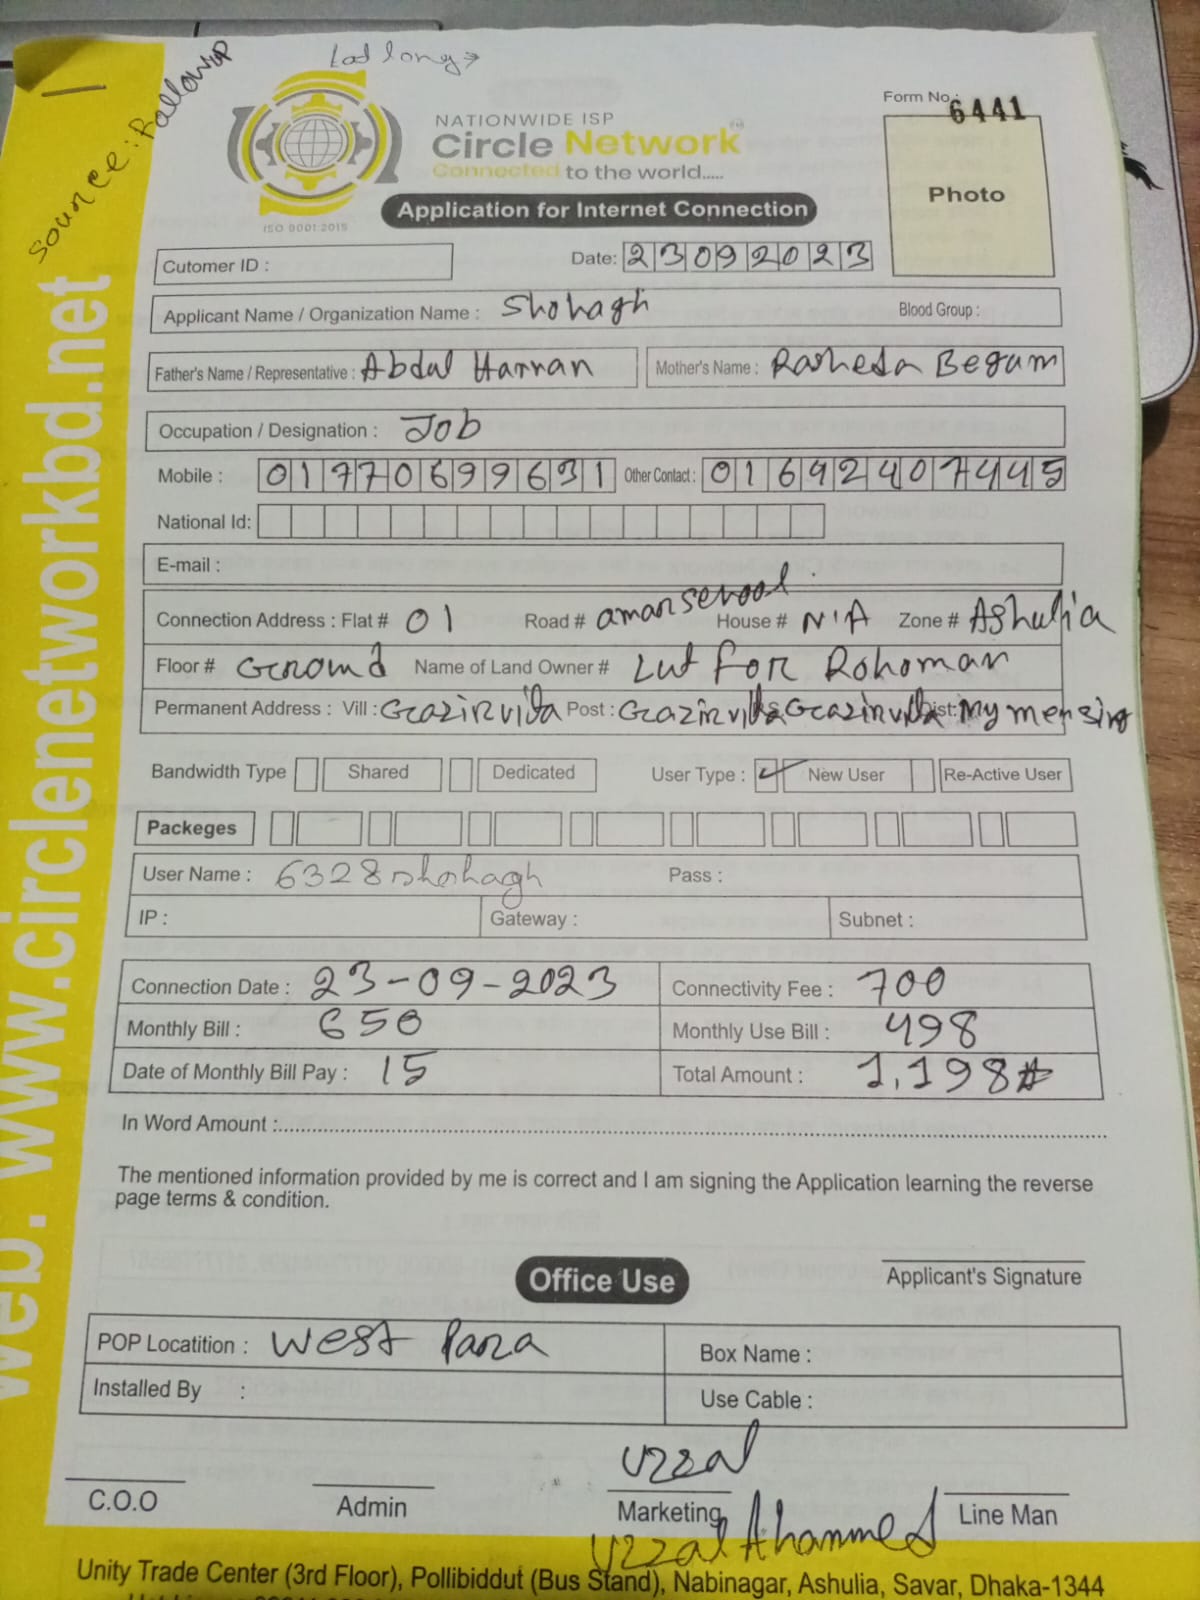 Lat long →
Source: Followup
NATIONWIDE ISP
Circle Network
Connected to the world.....
ISO 9001:2015
Form No.: 6441
Photo
Application for Internet Connection
Cutomer ID :
Date: 23092023
Applicant Name / Organization Name : Shohagh Blood Group :
Father's Name / Representative : Abdul Hannan Mother's Name : Rasheda Begum
Occupation / Designation : Job
Mobile : 01770699631 Other Contact : 01692407445
National Id:
E-mail :
Connection Address : Flat # 01 Road # aman school House # N'A Zone # Ashulia
Floor # Ground Name of Land Owner # Lut for Rohoman
Permanent Address : Vill : Post : Dist: Mymensing
Bandwidth Type Shared Dedicated User Type : ✓ New User Re-Active User
Packeges
User Name : 6328shohagh Pass :
IP : Gateway : Subnet :
Connection Date : 23-09-2023 Connectivity Fee : 700
Monthly Bill : 650 Monthly Use Bill : 498
Date of Monthly Bill Pay : 15 Total Amount : 1,198#
In Word Amount :
The mentioned information provided by me is correct and I am signing the Application learning the reverse
page terms & condition.
Applicant's Signature
Office Use
POP Locatition : West Para Box Name :
Installed By : Use Cable :
Uzzal
C.O.O Admin Marketing Line Man
Uzzal Ahammed
Unity Trade Center (3rd Floor), Pollibiddut (Bus Stand), Nabinagar, Ashulia, Savar, Dhaka-1344
web: www.circlenetworkbd.net